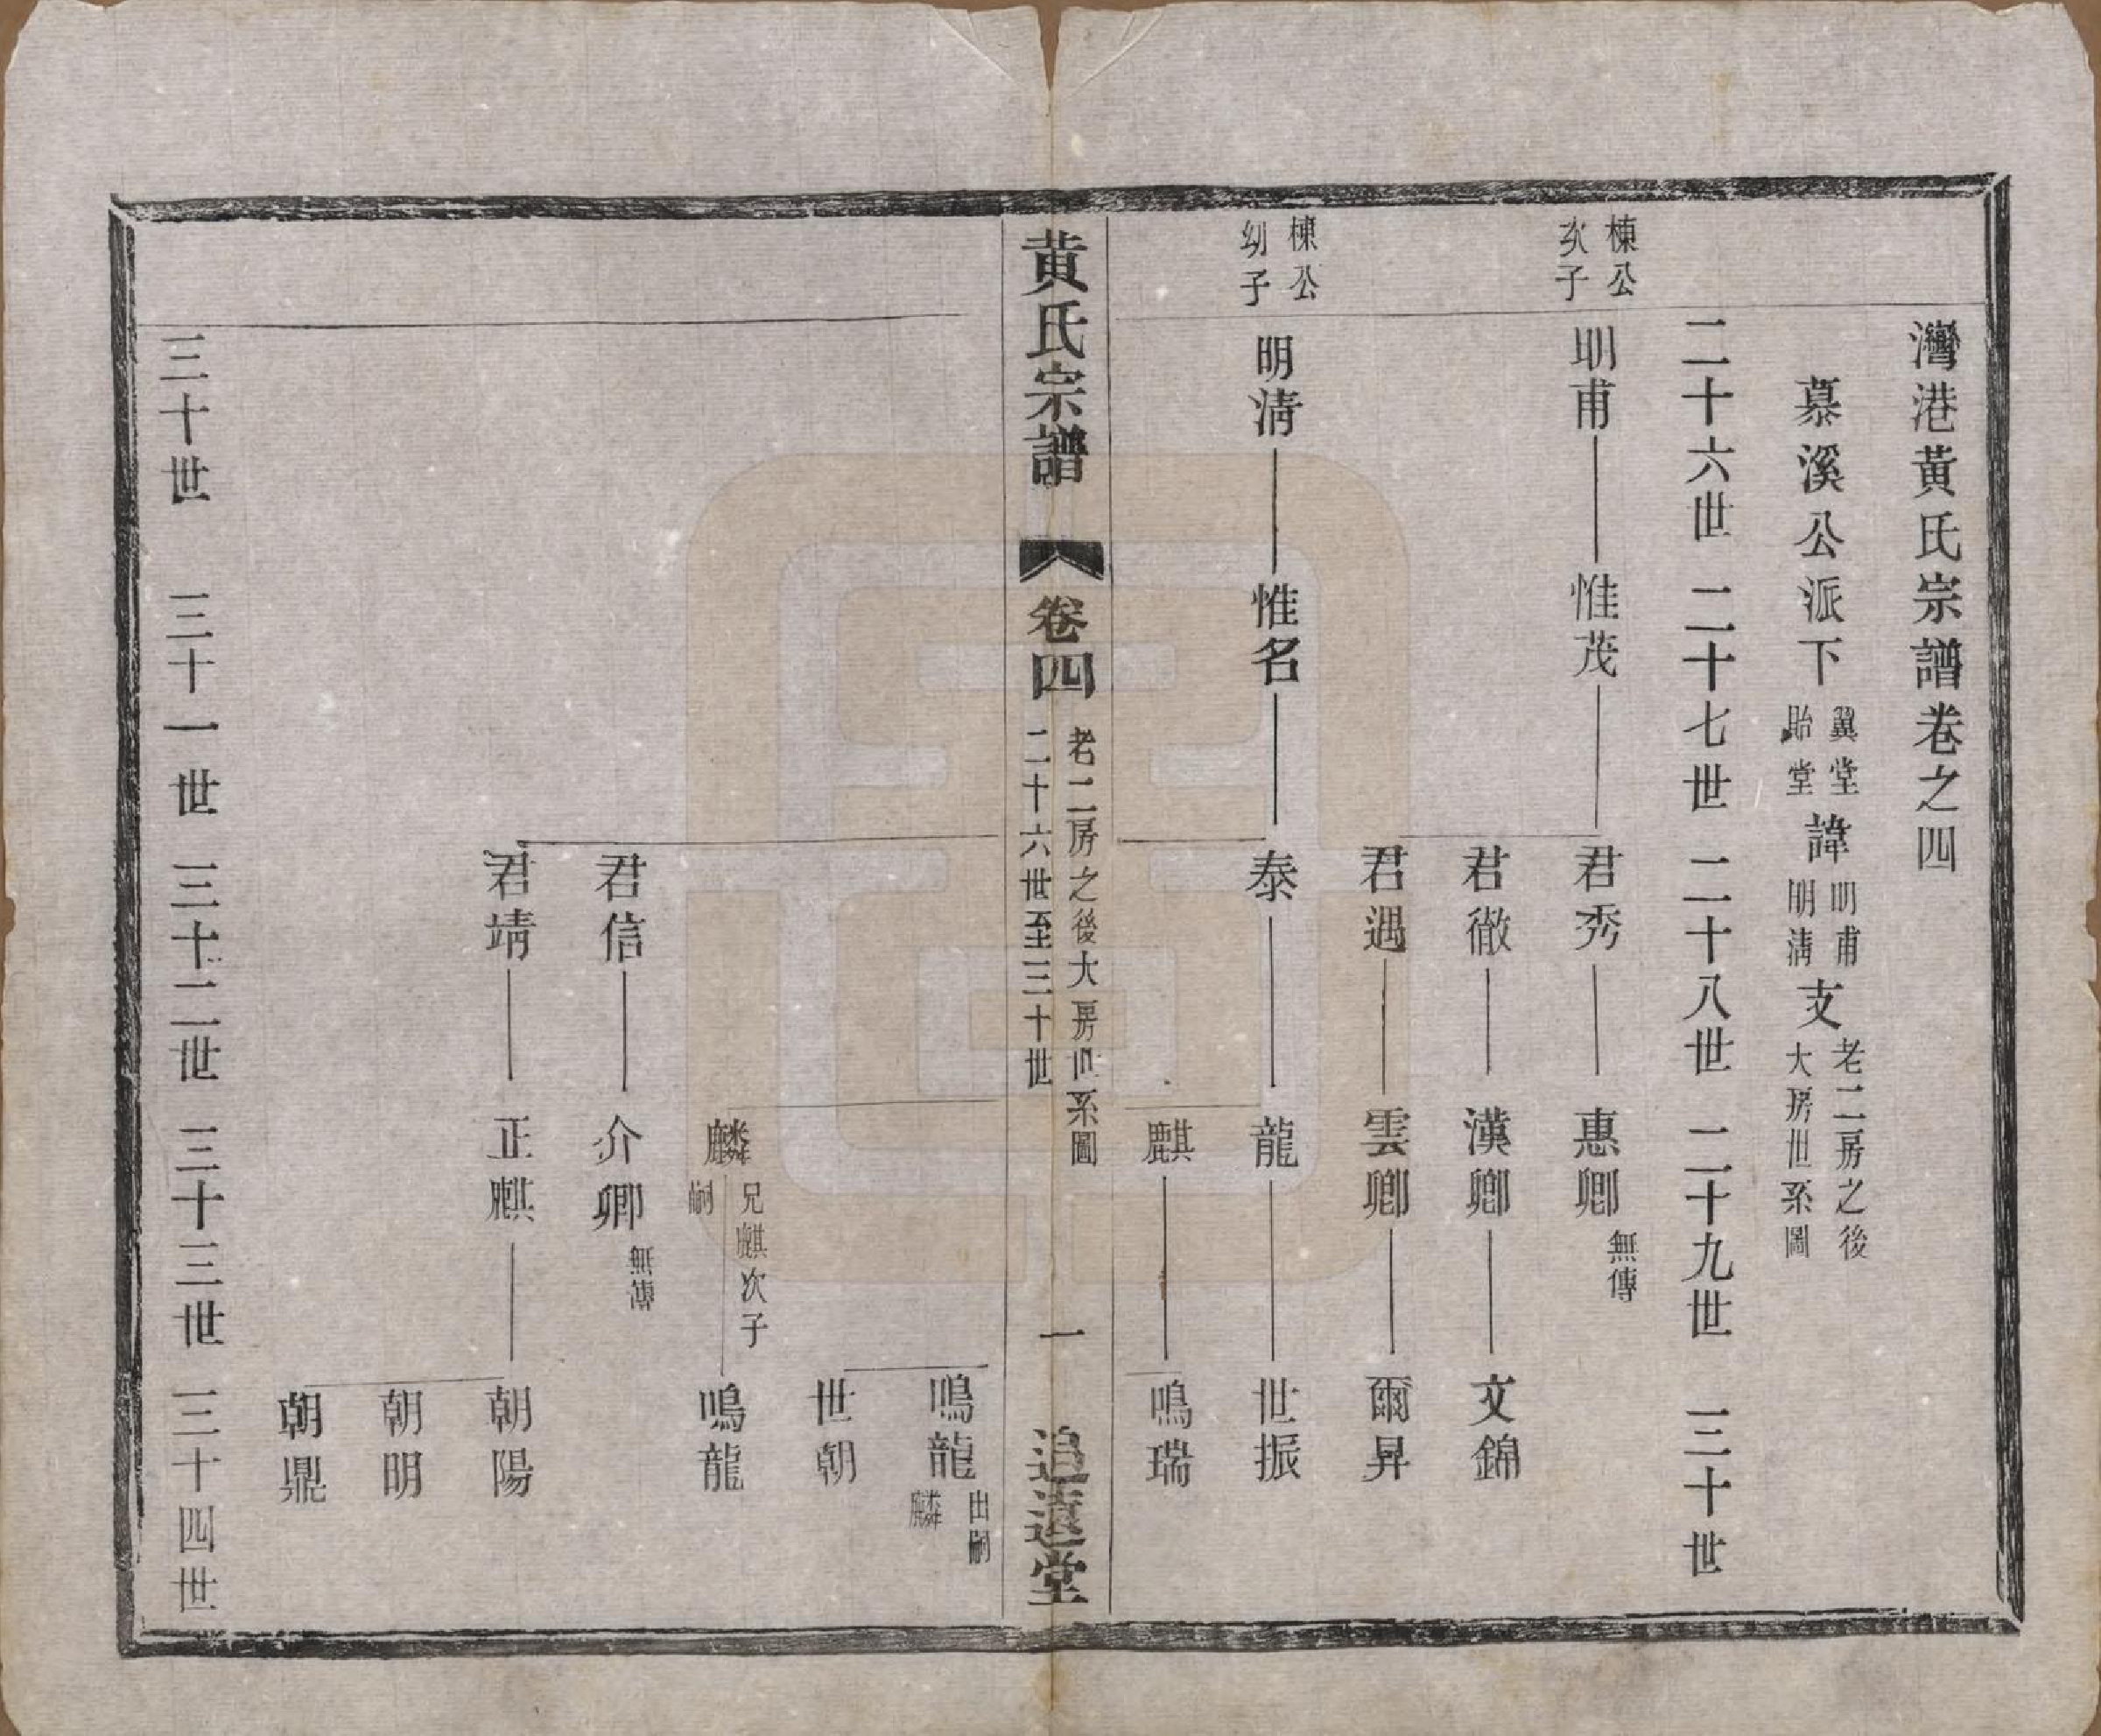 灣港黃氏宗譜卷之四
慕溪公派下
翼堂
貽堂
諱
明甫
明清
支
老二房之後
大房世系圖
二十六世 二十七世 二十八世 二十九世 三十世
棟公
次子
明甫 惟茂 君秀 惠卿
無傳
君徹 漢卿 文錦
君遇 雲卿 爾昇
棟公
幼子
明清 惟名 泰 龍 世振
麒 鳴瑞
黃氏宗譜 卷四
老二房之後大房世系圖
二十六世至三十世
一 追遠堂
鳴龍
出嗣
麟
世朝
麟
兄麒次子
嗣
鳴龍
君信 介卿
無傳
君靖 正麒 朝陽
朝明
朝鼎
三十世 三十一世 三十二世 三十三世 三十四世